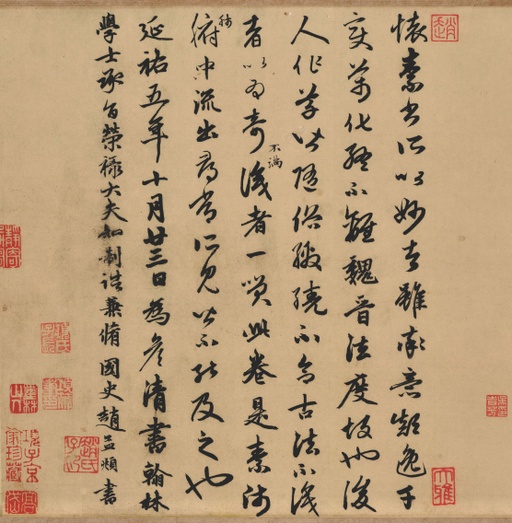 懷素書所以妙者雖率意顛逸千
變萬化終不離魏晉法度故也後
人作草皆隨俗繳繞不合古法不識
者以為奇不滿識者一笑此卷是素師
肺腑中流出尋常所見皆不能及之也
延祐五年十月廿三日為彥清書翰林
學士承旨榮祿大夫知制誥兼脩國史趙孟頫書
趙
大雅
趙氏子昂
項子京家珍藏